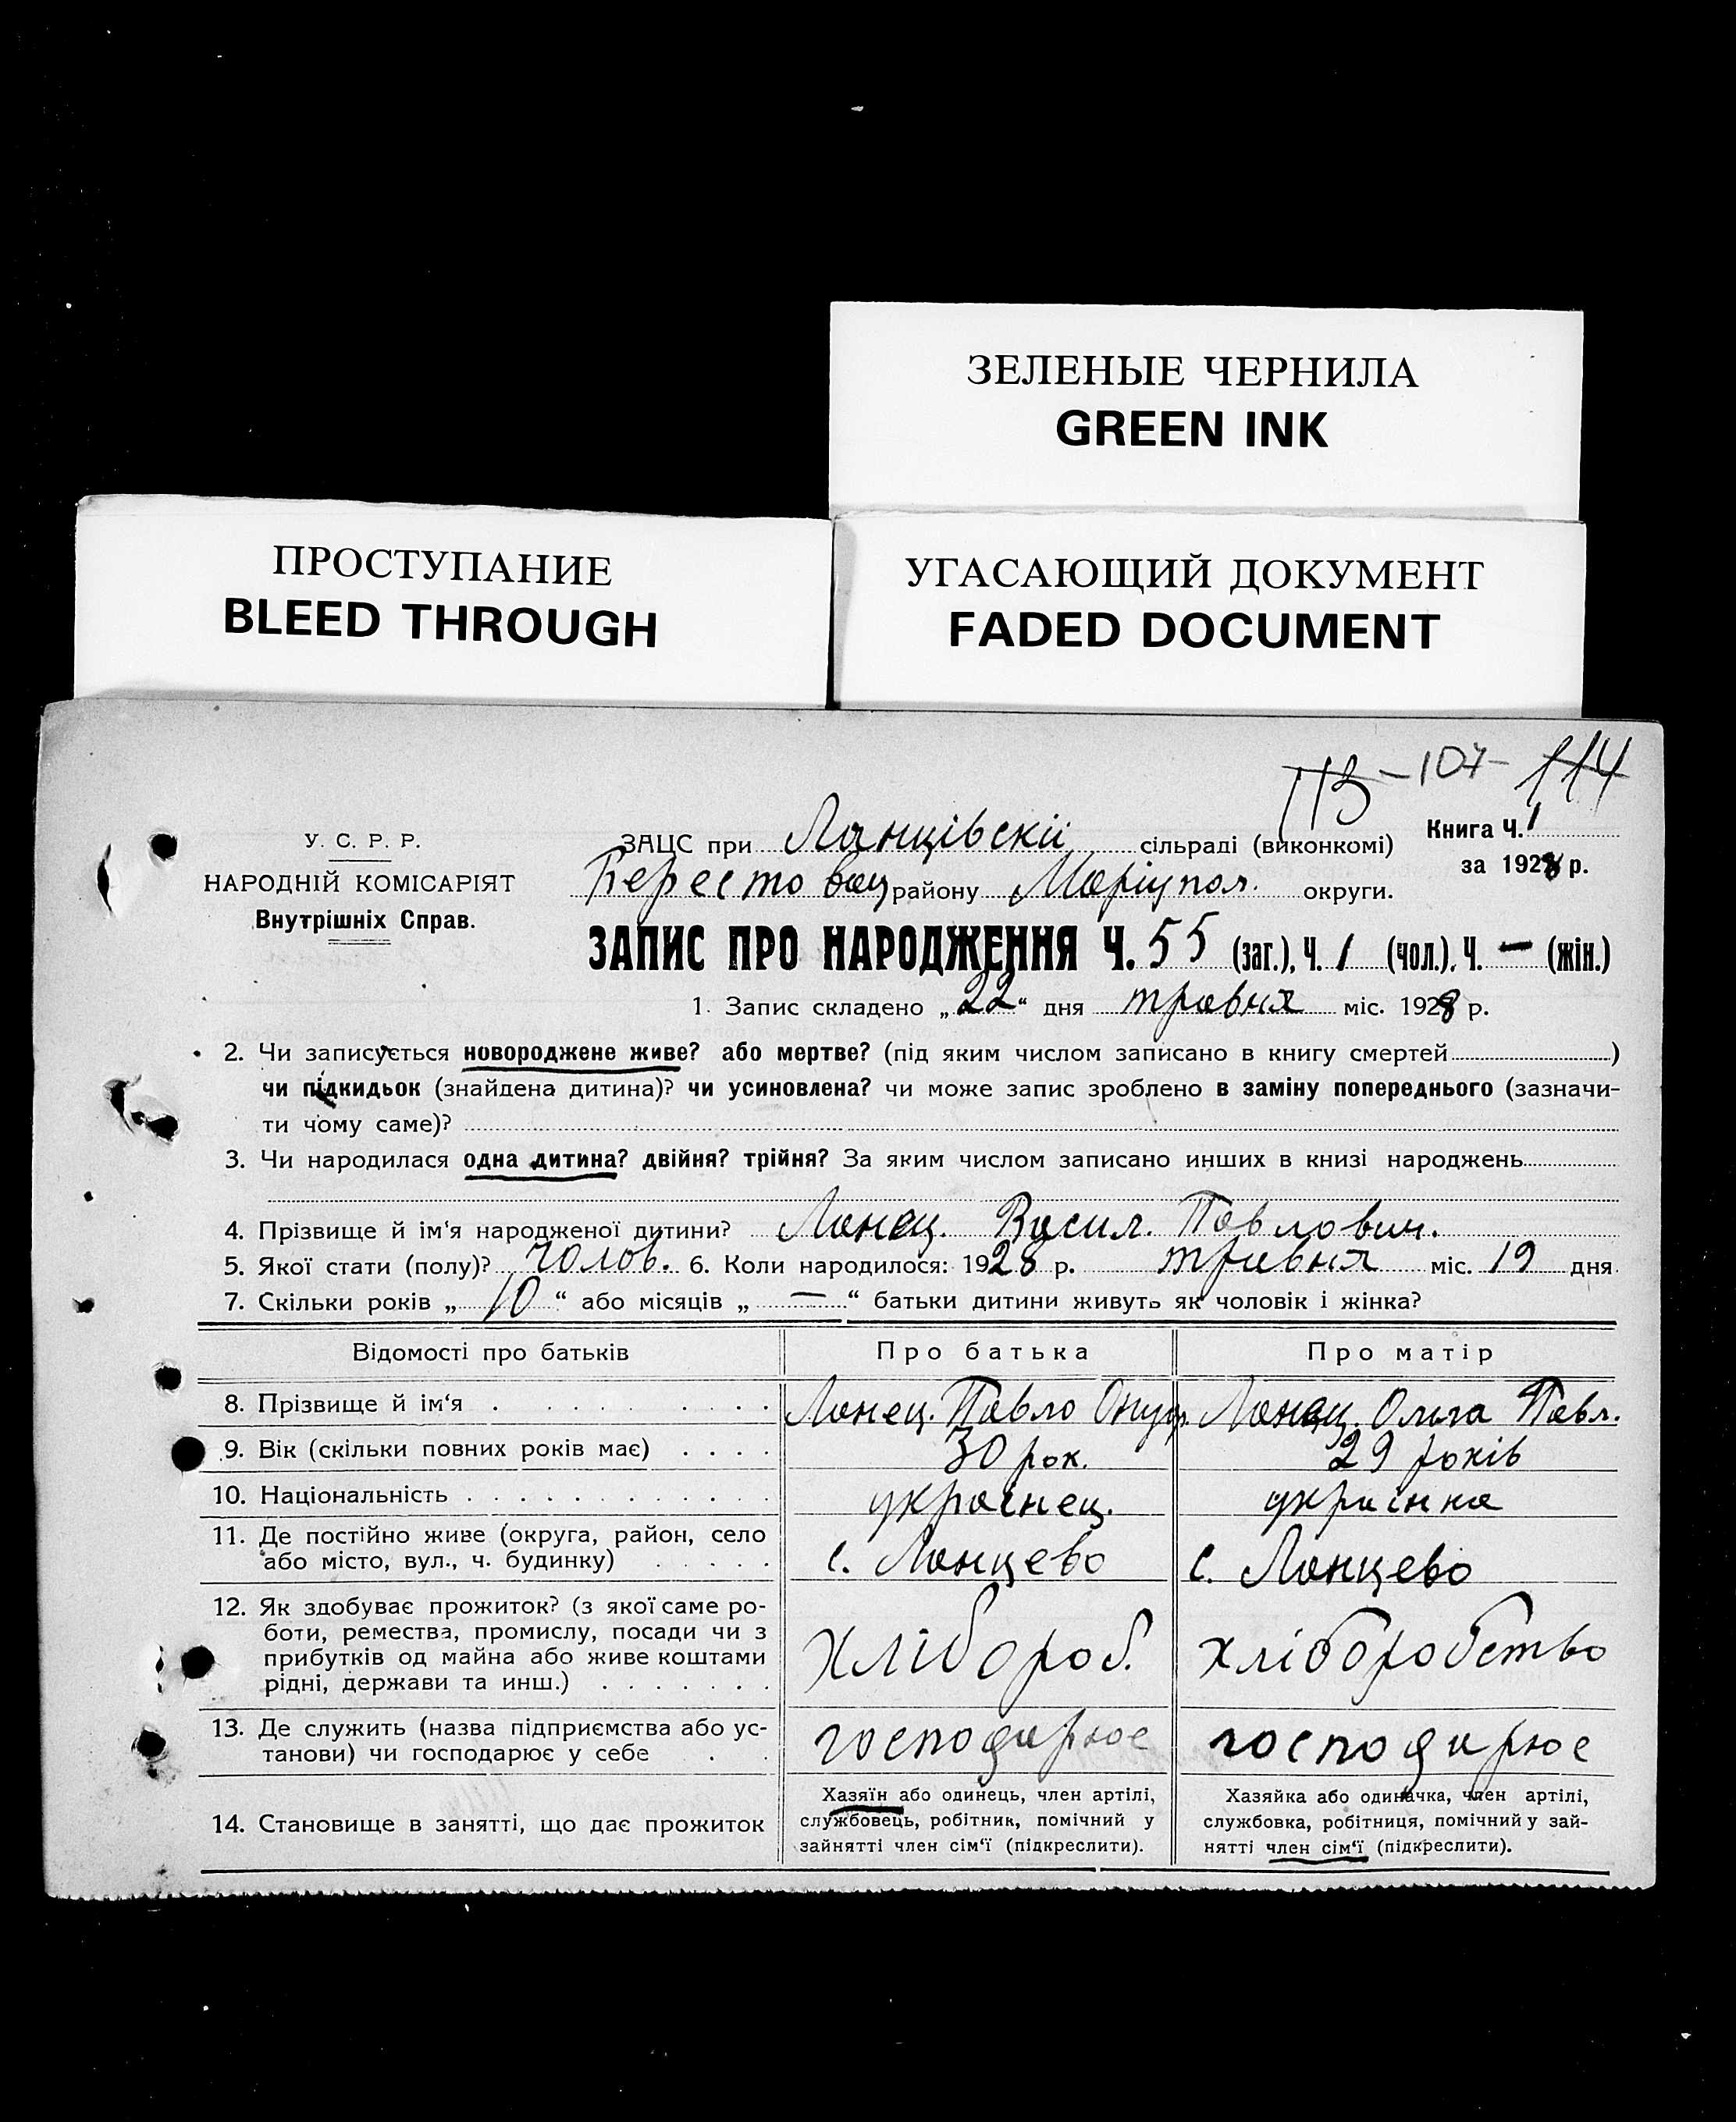 ЗЕЛЕНЫЕ ЧЕРНИЛА
GREEN INK
ПРОСТУПАНИЕ
BLEED THROUGH
УГАСАЮЩИЙ ДОКУМЕНТ
FADED DOCUMENT
113 - 107 - 114
У. С. Р. Р.
НАРОДНІЙ КОМІСАРІЯТ
Внутрішніх Справ.
ЗАЦС при Ланцівскій сільраді (виконкомі)
Книга Ч. 1
за 1928 р.
Берестовец району Маріупол. округи.
ЗАПИС ПРО НАРОДЖЕННЯ Ч. 55 (заг.), Ч. 1 (чол.), Ч. — (жін.)
1. Запис складено „22“ дня травня міс. 1928 р.
2. Чи записується новороджене живе? або мертве? (під яким числом записано в книгу смертей )
чи підкидьок (знайдена дитина)? чи усиновлена? чи може запис зроблено в заміну попереднього (зазначи-
ти чому саме)?
3. Чи народилася одна дитина? двійня? трійня? За яким числом записано инших в книзі народжень
4. Прізвище й ім‘я народженої дитини? Ланец. Васил. Павлович.
5. Якої стати (полу)? чолов. 6. Коли народилося: 1928 р. травня міс. 19 дня
7. Скільки років „10“ або місяців „—“ батьки дитини живуть як чоловік і жінка?
Відомості про батьків Про батька Про матір
8. Прізвище й ім‘я Ланец. Павло Онуф. Ланец. Ольга Павл.
9. Вік (скільки повних років має) 30 рок. 29 років
10. Національність украінец. украінка
11. Де постійно живе (округа, район, село
або місто, вул., ч. будинку) с. Ланцево с. Ланцево
12. Як здобуває прожиток? (з якої саме ро-
боти, ремества, промислу, посади чи з
прибутків од майна або живе коштами
рідні, держави та инш.) хлібороб. хліборобство
13. Де служить (назва підприємства або ус-
танови) чи господарює у себе господарює господарює
14. Становище в занятті, що дає прожиток
Хазяїн або одинець, член артілі,
службовець, робітник, помічний у
зайнятті член сім‘ї (підкреслити).
Хазяйка або одиначка, член артілі,
службовка, робітниця, помічний у зай-
нятті член сім‘ї (підкреслити).